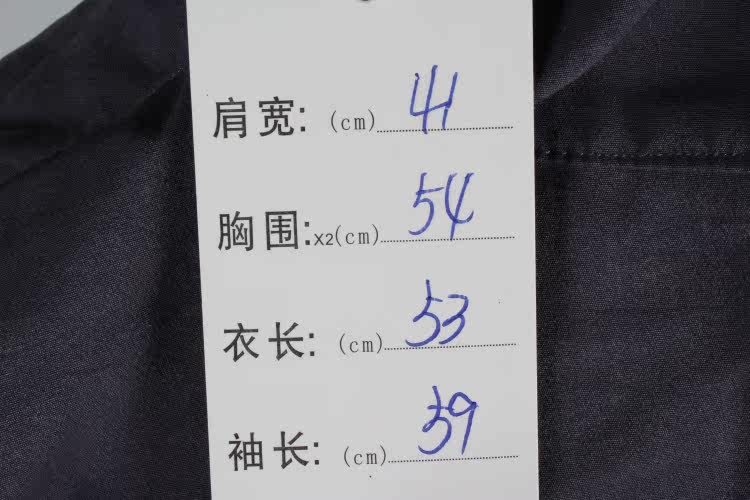 肩宽: (cm) 41
胸围:X2(cm) 54
衣长: (cm) 53
袖长: (cm) 59